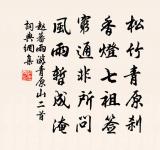 松竹青原剎
香燈七祖
窮通非所問
風雨暫成淹
趙蕃雨游青原山二首
詞典網集